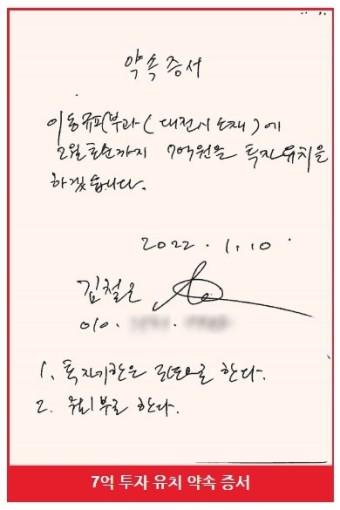 약속 증서
이동규피부과 (대전시 소재) 에
2월 초순까지 7억원을 투자유치를
하겠습니다.
2022. 1. 10
김철오
010.
1. 투자기한은 로 한다.
2. 부로 한다.
7억 투자 유치 약속 증서